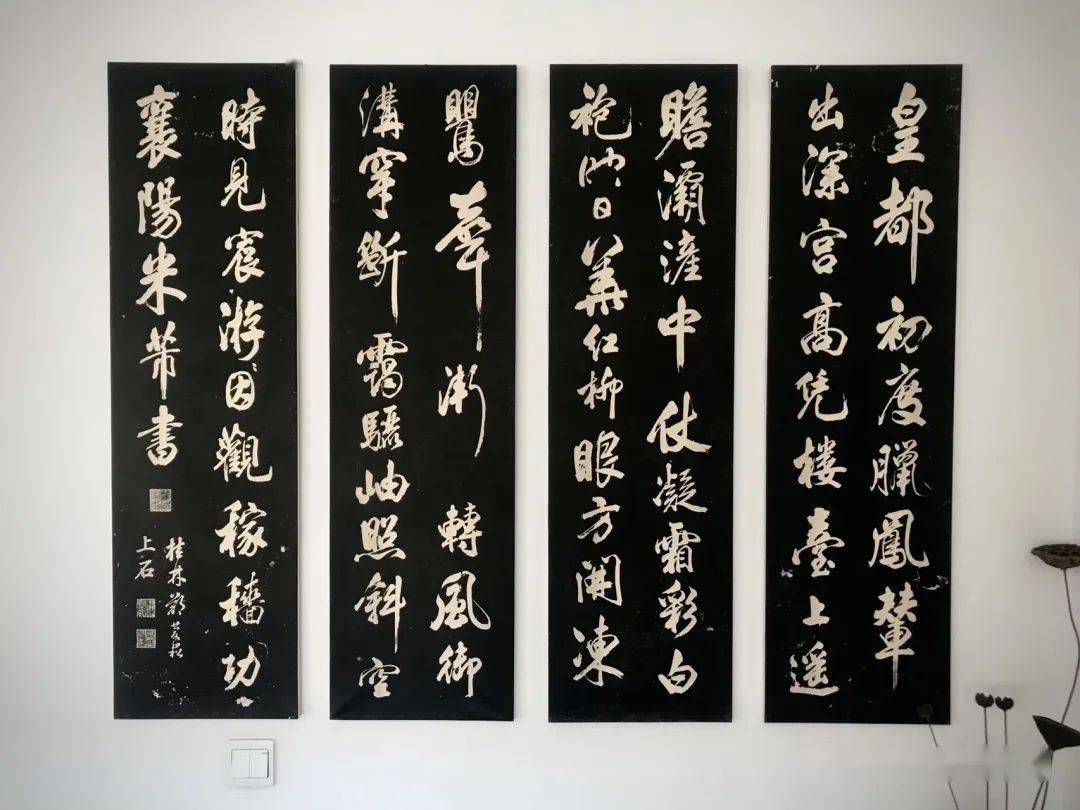 皇都初度臘鳳輦
出深宫高凭楼臺上遥
瞻灞滻中仗凝霜彩白
袍映日華红柳眼方開凍
鸎華漸轉風御
溝穿斷靄驪岫照斜空
時見宸游因觀稼穡功
襄陽米芾書
桂林
上石